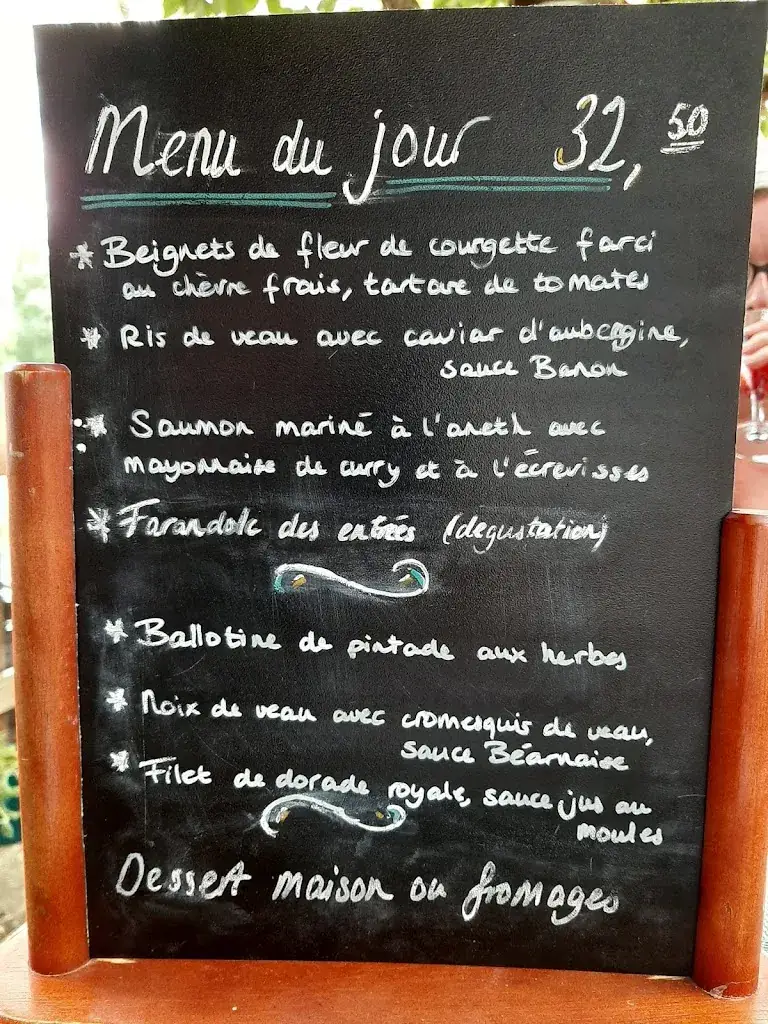 Menu du jour 32,50
* Beignets de fleur de courgette farci
au chèvre frais, tartare de tomates
* Ris de veau avec caviar d'aubergine,
sauce Banon
* Saumon mariné à l'aneth avec
mayonnaise de curry et à l'écrevisses
* Farandole des entrées (degustation)
* Ballotine de pintade aux herbes
* Noix de veau avec cromesquis de veau,
sauce Béarnaise
* Filet de dorade royale, sauce jus au
moules
Dessert maison ou fromages